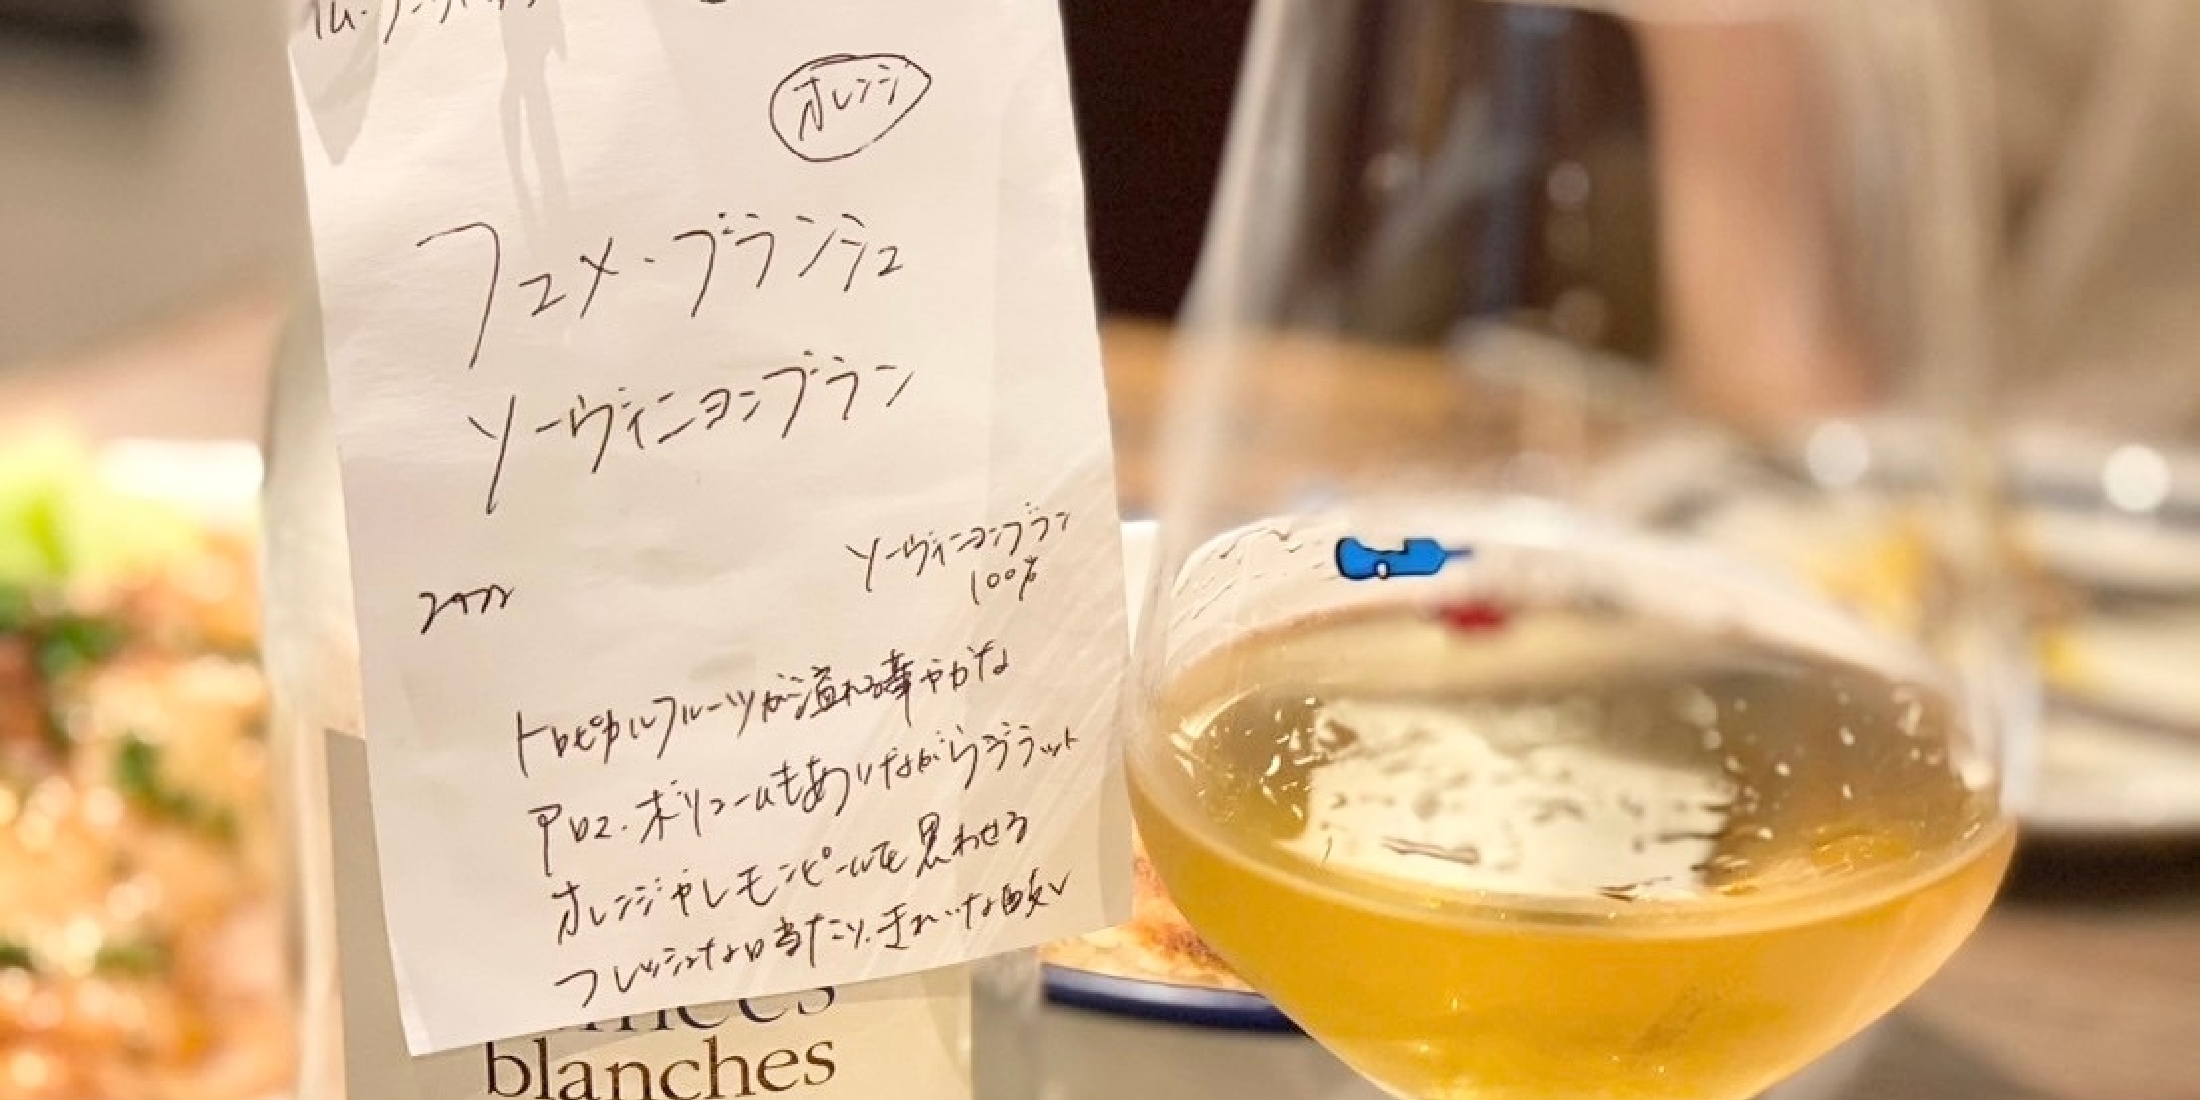 オレンジ
フュメ・ブランシュ
ソーヴィニヨンブラン
ソーヴィニヨンブラン
100%
フランス
トロピカルフルーツが溢れる華やかな
アロマ。ボリュームもありながらジラット
オレンジやレモンピールを思わせる
フレッシュな口当たり。きれいな酸
blanches